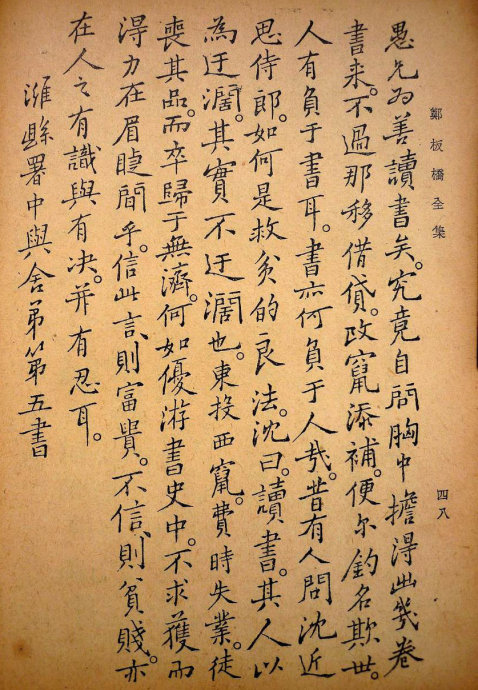 鄭板橋全集
四八
愚兄為善讀書矣。究竟自問胸中擔得出幾卷
書來。不過那移借貸。改竄添補。便尔釣名欺世。
人有負于書耳。書亦何負于人哉。昔有人問沈近
思侍郎。如何是救貧的良法。沈曰。讀書。其人以
為迂濶。其實不迂濶也。東投西竄。費時失業。徒
喪其品。而卒歸于無濟。何如優游書史中。不求獲而
得力在眉睫間乎。信此言、則富貴。不信、則貧賤。亦
在人之有識與有决。并有忍耳。
濰縣署中與舍弟第五書